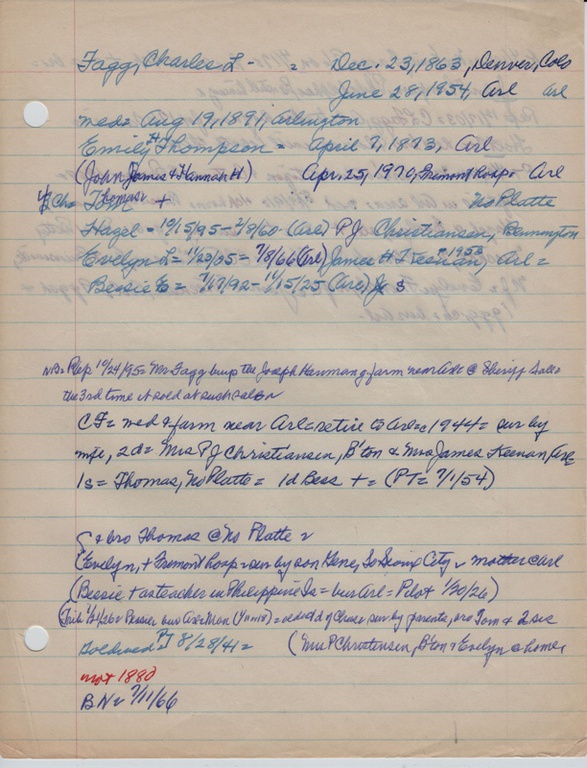 Fagg, Charles L - = Dec. 23, 1863, Denver, Colo
June 28, 1954, Arl Arl
med = Aug 19, 1891, Arlington
Emily H Thompson = April 7, 1873, Arl
(John James & Hannah H) Apr. 25, 1970, Fremont hosp = Arl
Ch = Thomas + No Platte
Hazel = 10/15/95 - 2/8/60 (Arl) P J Christiansen, Bennington
Evelyn L = 11/23/05 = 7/8/66 (Arl) James H Keenan, 1953 Arl =
Bessie E = 7/17/92 - 11/15/25 (Arl) S
NB = Rep 10/24/95 = Mr Fagg buys the Joseph farm near Arl @ Sheriff Sale
the 3rd time it sold at such sale
CF = med & farm near Arl = retire to Arl = c 1944 = sur by
wife, 2d = Mrs P J Christiansen, B'ton & Mrs James Keenan, Arl
1s = Thomas, No Platte = 1d Bess + = (PT = 7/1/54)
bro Thomas @ No Platte
(Evelyn, + Fremont hosp = sur by son Gene, So Sioux City mother Arl
(Bessie + as teacher in Philippine Is = bur Arl = Pilot 1/30/26)
Bessie bur Arl Mon = d of Chas = sur by parents, bro Tom & 2 sis
8/28/41 = (Mrs P Christensen, B'ton & Evelyn @ home)
not 1880
B.N 7/11/66